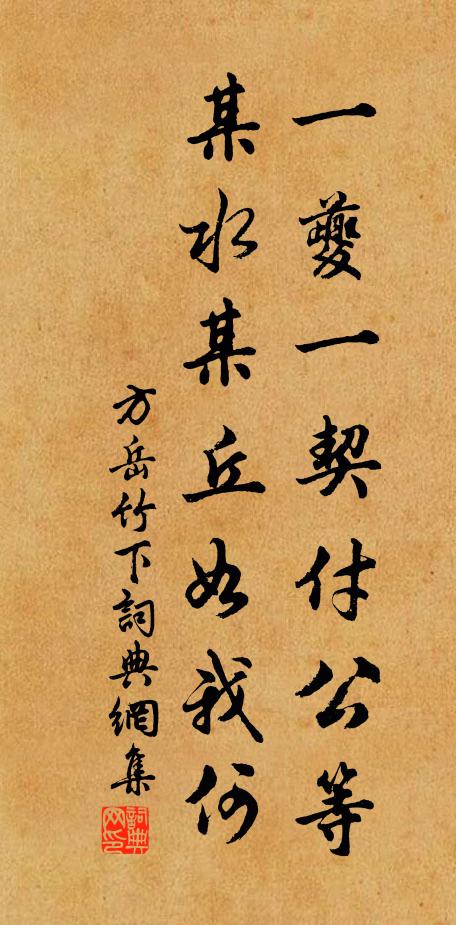 一夔一契付公等
某水某丘如我何
方岳竹下詞典網集
詞典
网印